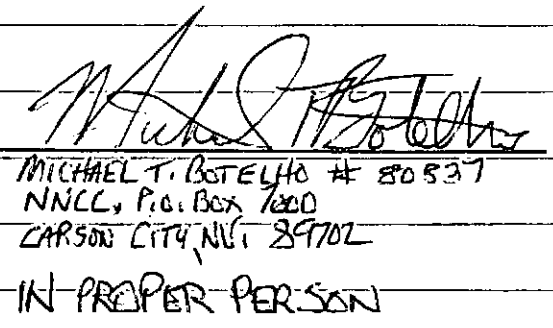 Michael T. Botelho
MICHAEL T. BOTELHO # 80837
NNCC, P.O. BOX 7000
CARSON CITY, NV. 89702
IN PROPER PERSON